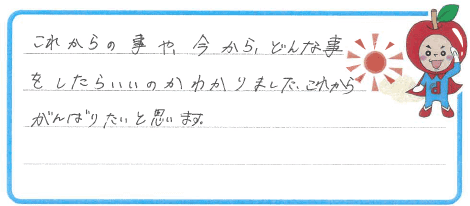 これからの事や、今から、どんな事
をしたらいいのかわかりました、これから
がんばりたいと思います。
d